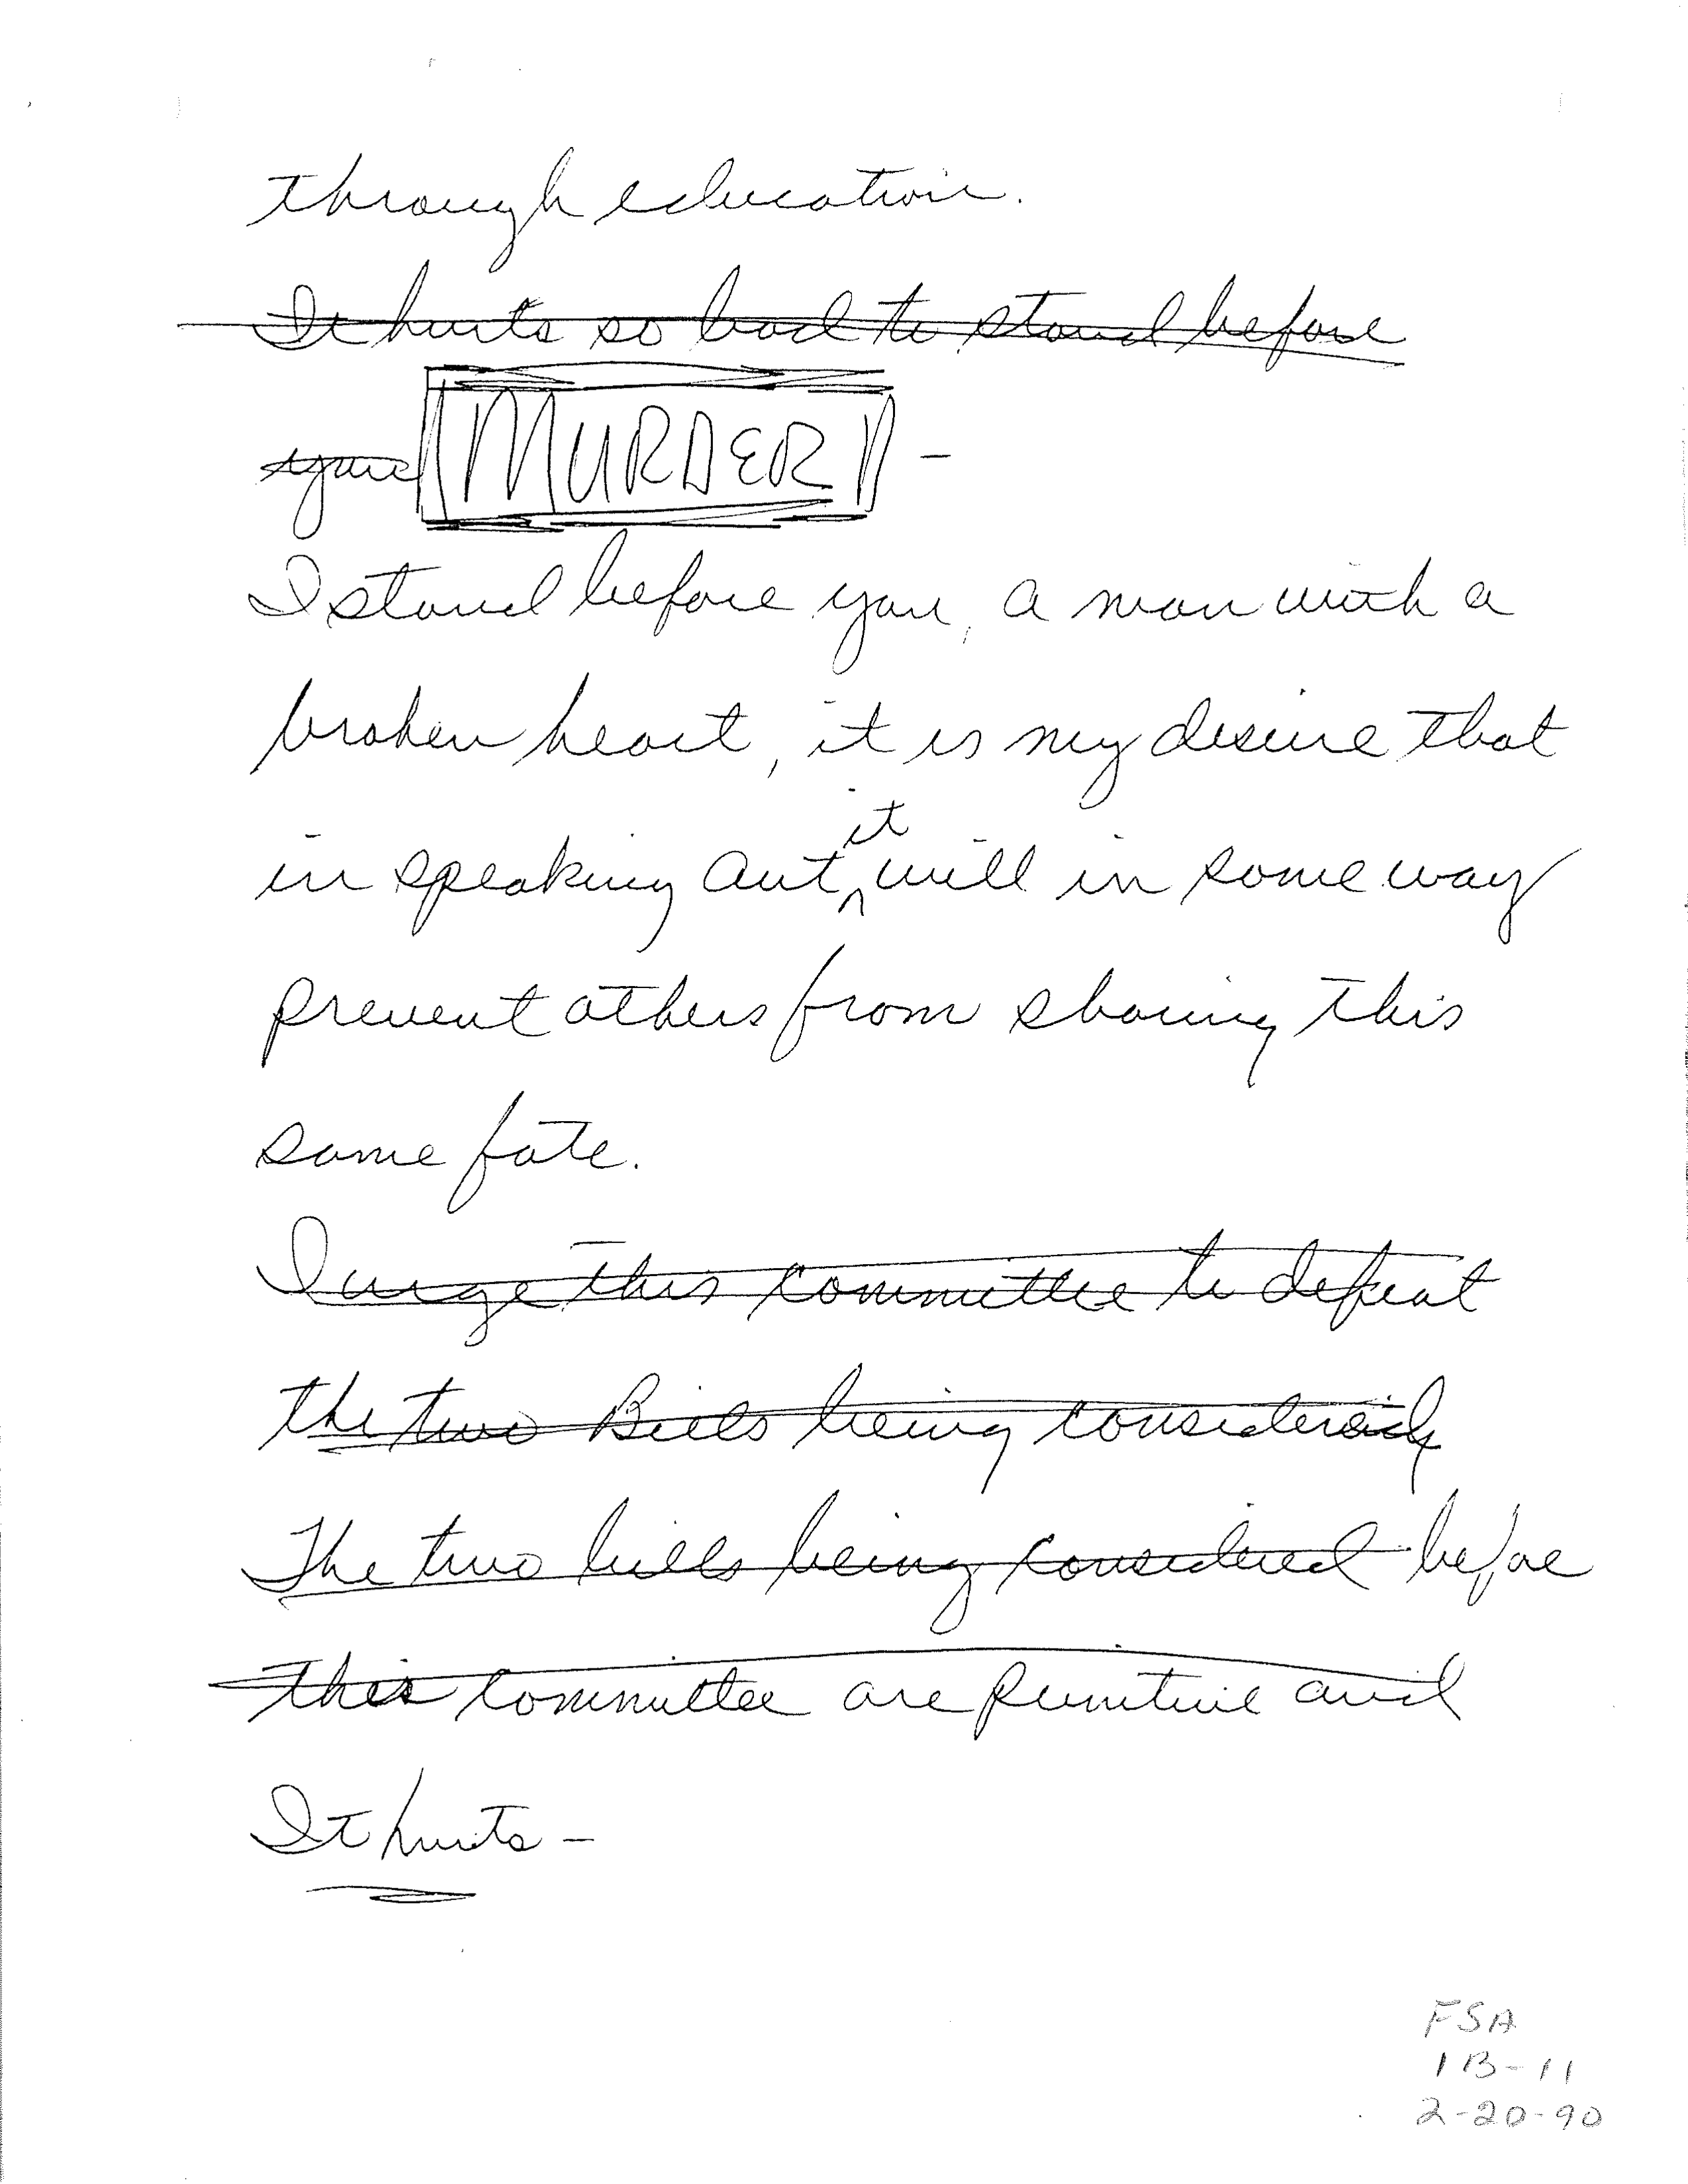 through education.
It hurts so bad to stand before
you MURDER -
I stand before you, a man with a
broken heart, it is my desire that
in speaking out it will in some way
prevent others from sharing this
same fate.
I urge this committee to defeat
the two Bills being considered
The two bills being considered before
this committee are punitive and
It hurts -
FSA
1B-11
2-20-90